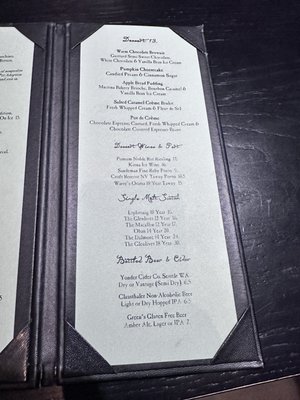 Dessert 13.
Warm Chocolate Brownie
Ganache Semi-Sweet Chocolate,
White Chocolate & Vanilla Bean Ice Cream
Pumpkin Cheesecake
Candied Pecans & Cinnamon Sugar
Apple Bread Pudding
Macrina Bakery Brioche, Bourbon Caramel &
Vanilla Bean Ice Cream
Salted Caramel Crème Brulee
Fresh Whipped Cream & Fleur de Sel
Pot de Crème
Chocolate Espresso Custard, Fresh Whipped Cream &
Chocolate Covered Espresso Bean
Dessert Wine & Port
Noble Riesling
Ice Wine
Sandeman Fine Ruby Porto
Tawny Porto
10 Year Tawny
Single Malt Scotch
10 Year
The Glenlivet 12 Year
The Macallan 12 Year
Oban 14 Year
The Dalmore 14 Year
The Glenlivet 18 Year
Bottled Beer & Cider
Yonder Cider Co. Seattle WA
Dry or Vintage (Semi Dry) 6.5
Clausthaler Non-Alcoholic Beer
Light or Dry Hopped IPA 6.5
Green's Gluten Free Beer
Amber Ale, Lager or IPA 7.